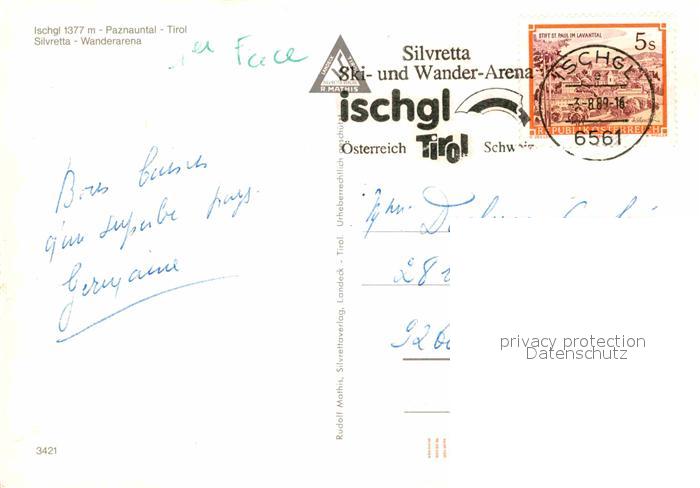 Ischgl 1377 m - Paznauntal - Tirol
Silvretta - Wanderarena
Face
R MATHIS
Silvretta
Ski- und Wander-Arena
ischgl
Österreich Tirol Schweiz
STIFT ST. PAUL IM LAVANTTAL
5s
REPUBLIK ÖSTERREICH
ISCHGL
-3.-8.89-16
6561
Bons baisers
d'un superbe pays.
Germaine
28
926
privacy protection
Datenschutz
Rudolf Mathis, Silvrettaverlag, Landeck - Tirol. Urheberrechtlich
3421